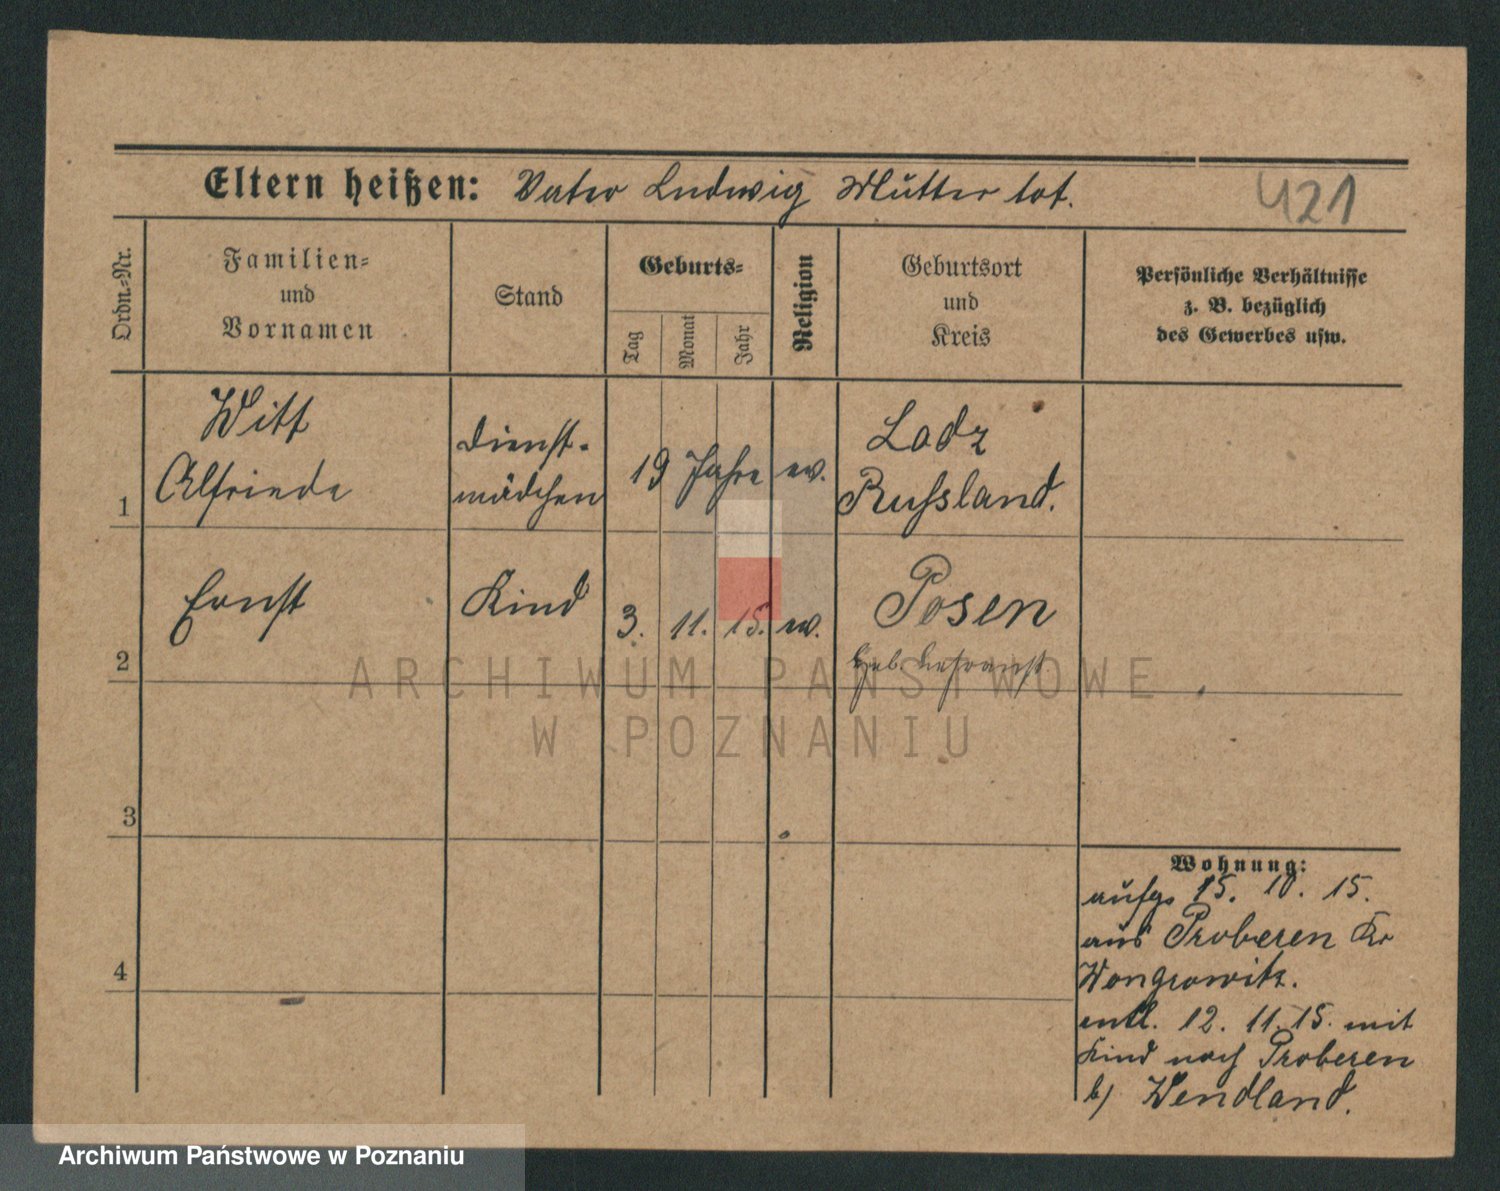 Eltern heißen: Vater Ludwig Mutter tot.
421
Ordn.-Nr.
Familien-
und
Vornamen
Stand
Geburts-
Tag
Monat
Jahr
Religion
Geburtsort
und
Kreis
Persönliche Verhältnisse
z. B. bezüglich
des Gewerbes usw.
1
Witt
Alfriede
Dienst-
mädchen
19 Jahre
ev.
Lodz
Russland.
2
Ernst
Kind
3. 11. 15.
ev.
Posen
Geb.
3
4
Wohnung:
aufg. 15. 10. 15.
aus Proberen Kr
Wongrowitz.
entl. 12. 11. 15. mit
Kind nach Proberen
b/ Wendland.
ARCHIWUM PAŃSTWOWE
W POZNANIU
Archiwum Państwowe w Poznaniu